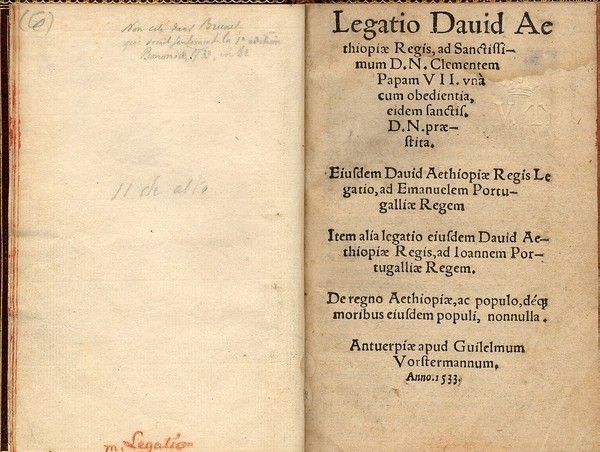 (6)
Non cité dans Brunet
qui décrit seulement la 1e edition
Bononiae, 1533, in 4°
11 de alto
m. Legatio
Legatio Dauid Ae
thiopiæ Regis, ad Sanctiſſi–
mum D.N. Clementem
Papam VII. vnà
cum obedientia,
eidem ſanctiſ.
D.N.præ–
ſtita.
Eiuſdem Dauid Aethiopiæ Regis Le
gatio,ad Emanuelem Portu–
galliæ Regem
Item alia legatio eiuſdem Dauid Ae–
thiopiæ Regis,ad Ioannem Por–
tugalliæ Regem.
De regno Aethiopiæ,ac populo,déq;
moribus eiuſdem populi, nonnulla.
Antuerpiæ apud Guilelmum
Vorſtermannum.
Anno.1533.